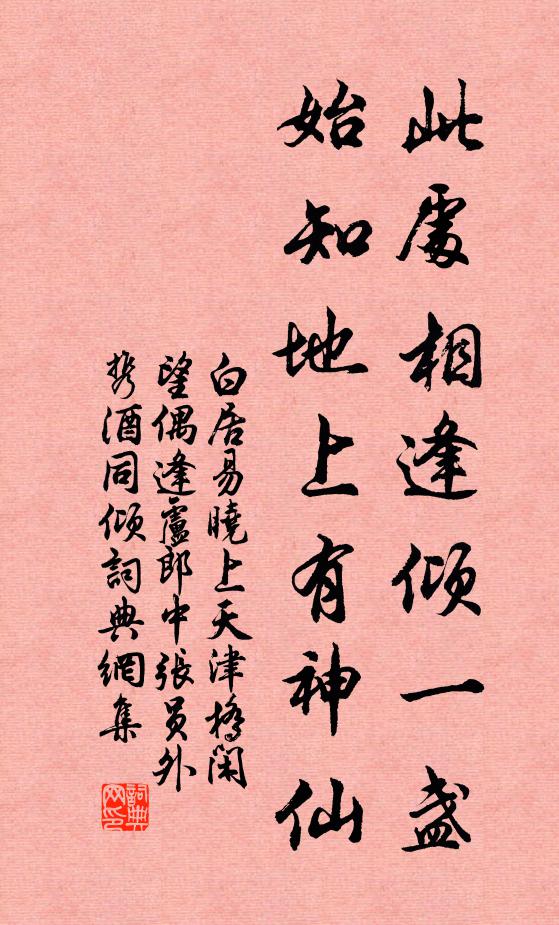 此處相逢傾一盞
始知地上有神仙
白居易曉上天津橋閑
望偶逢盧郎中張員外
携酒同傾詞典網集
詞典
网印